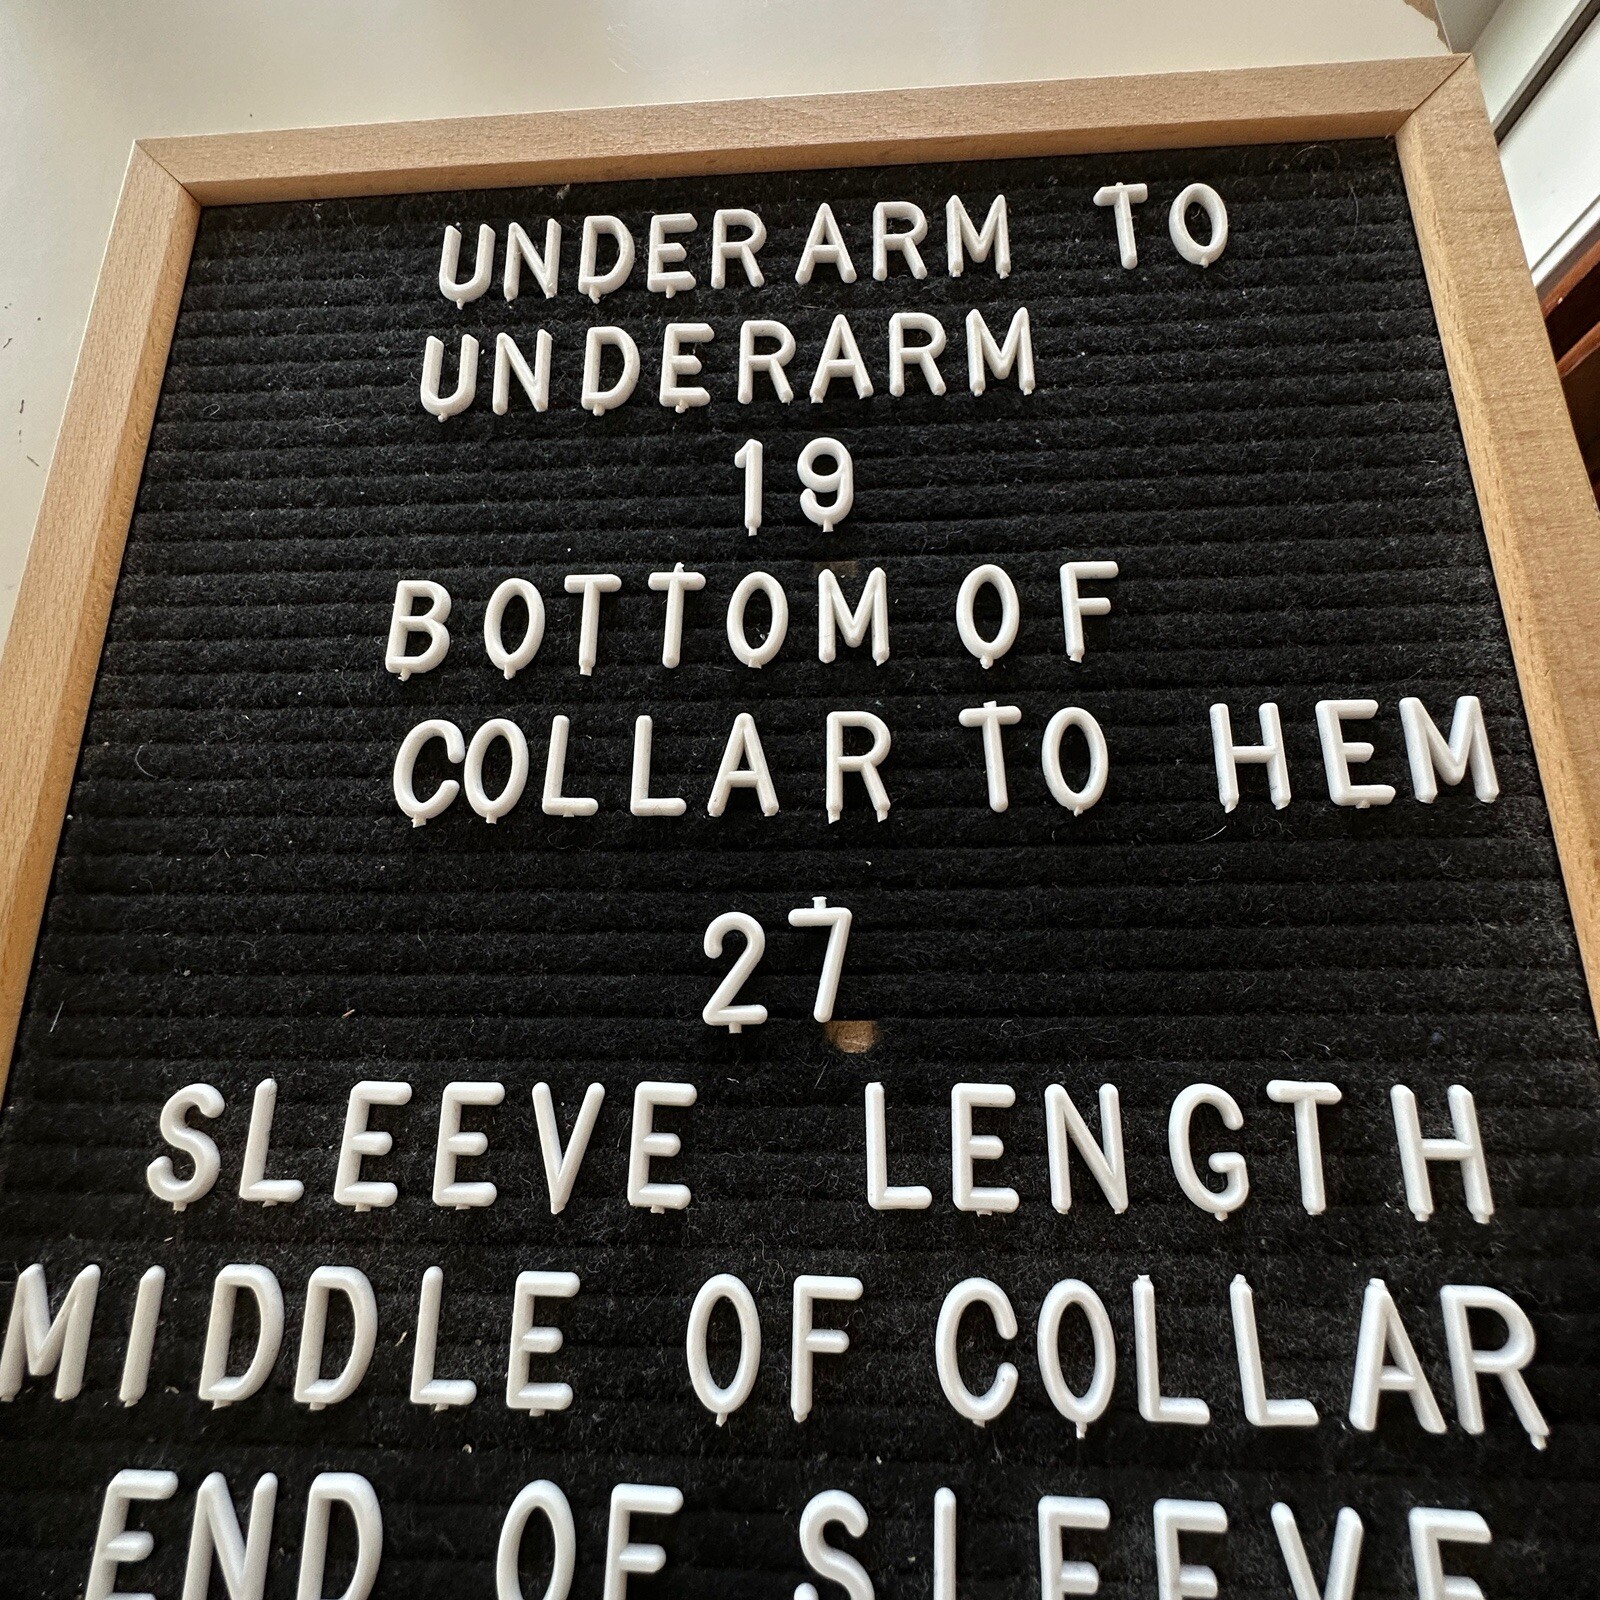 UNDERARM TO
UNDERARM
19
BOTTOM OF
COLLAR TO HEM
27
SLEEVE LENGTH
MIDDLE OF COLLAR
END OF SLEEVE